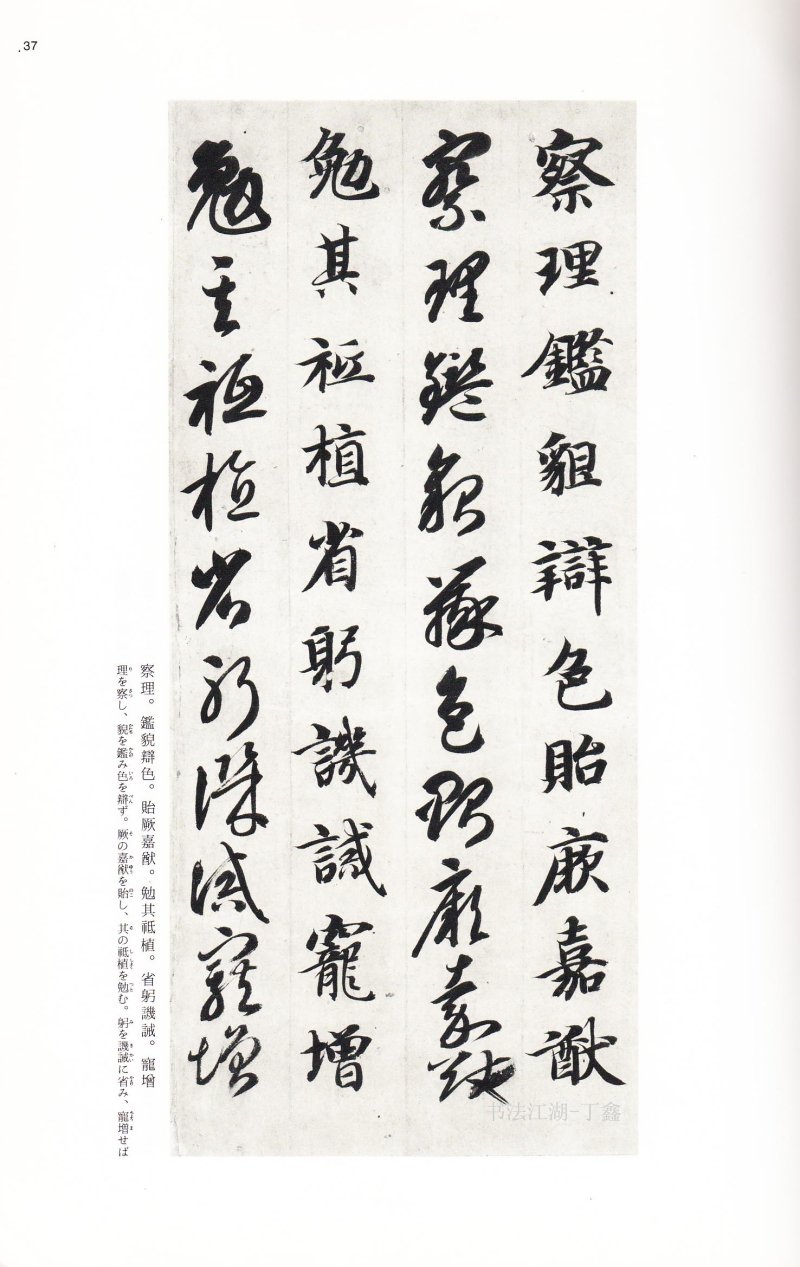 37
察理鑑貌辯色貽厥嘉猷
察理鑑貌辯色貽厥嘉猷
勉其祗植省躬譏誡寵增
勉其祗植省躬譏誡寵增
察理。鑑貌辯色。貽厥嘉猷。勉其祗植。省躬譏誡。寵增
理を察し、貌を鑑み色を辯ず。厥の嘉猷を貽し、其の祗植を勉む。躬を譏誡に省み、寵增せば
书法江湖-丁鑫